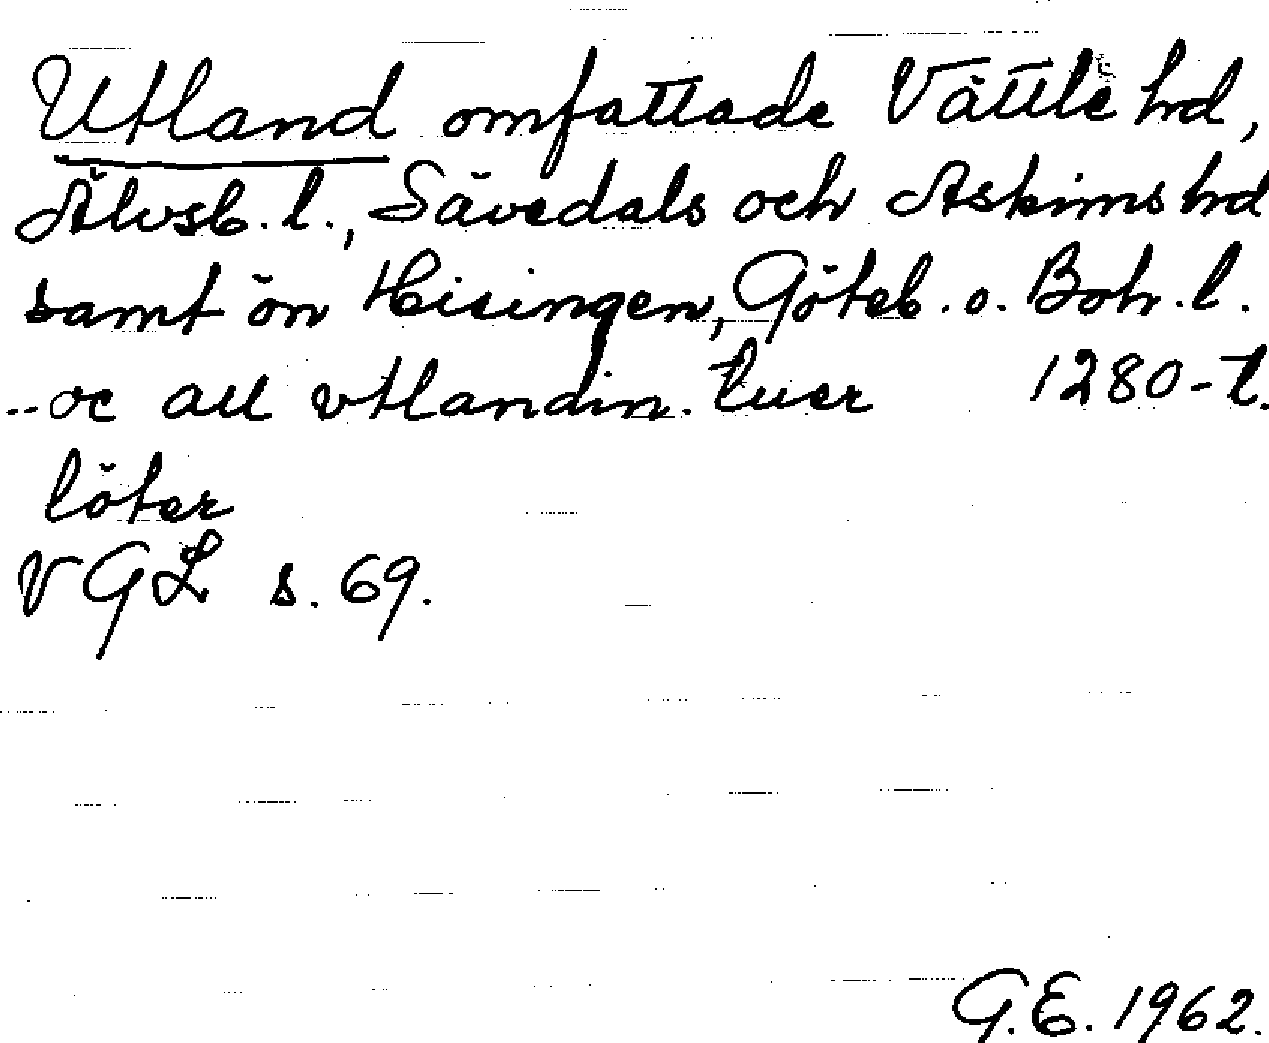 Utland omfattade Vättle hd,
Älvsb. l., Sävedals och Askims hd
samt ön Hisingen, Göteb. o. Boh. l.
-- oc all vtlandin. tuer 1280-t.
löter
VGL s. 69.
G.E. 1962.